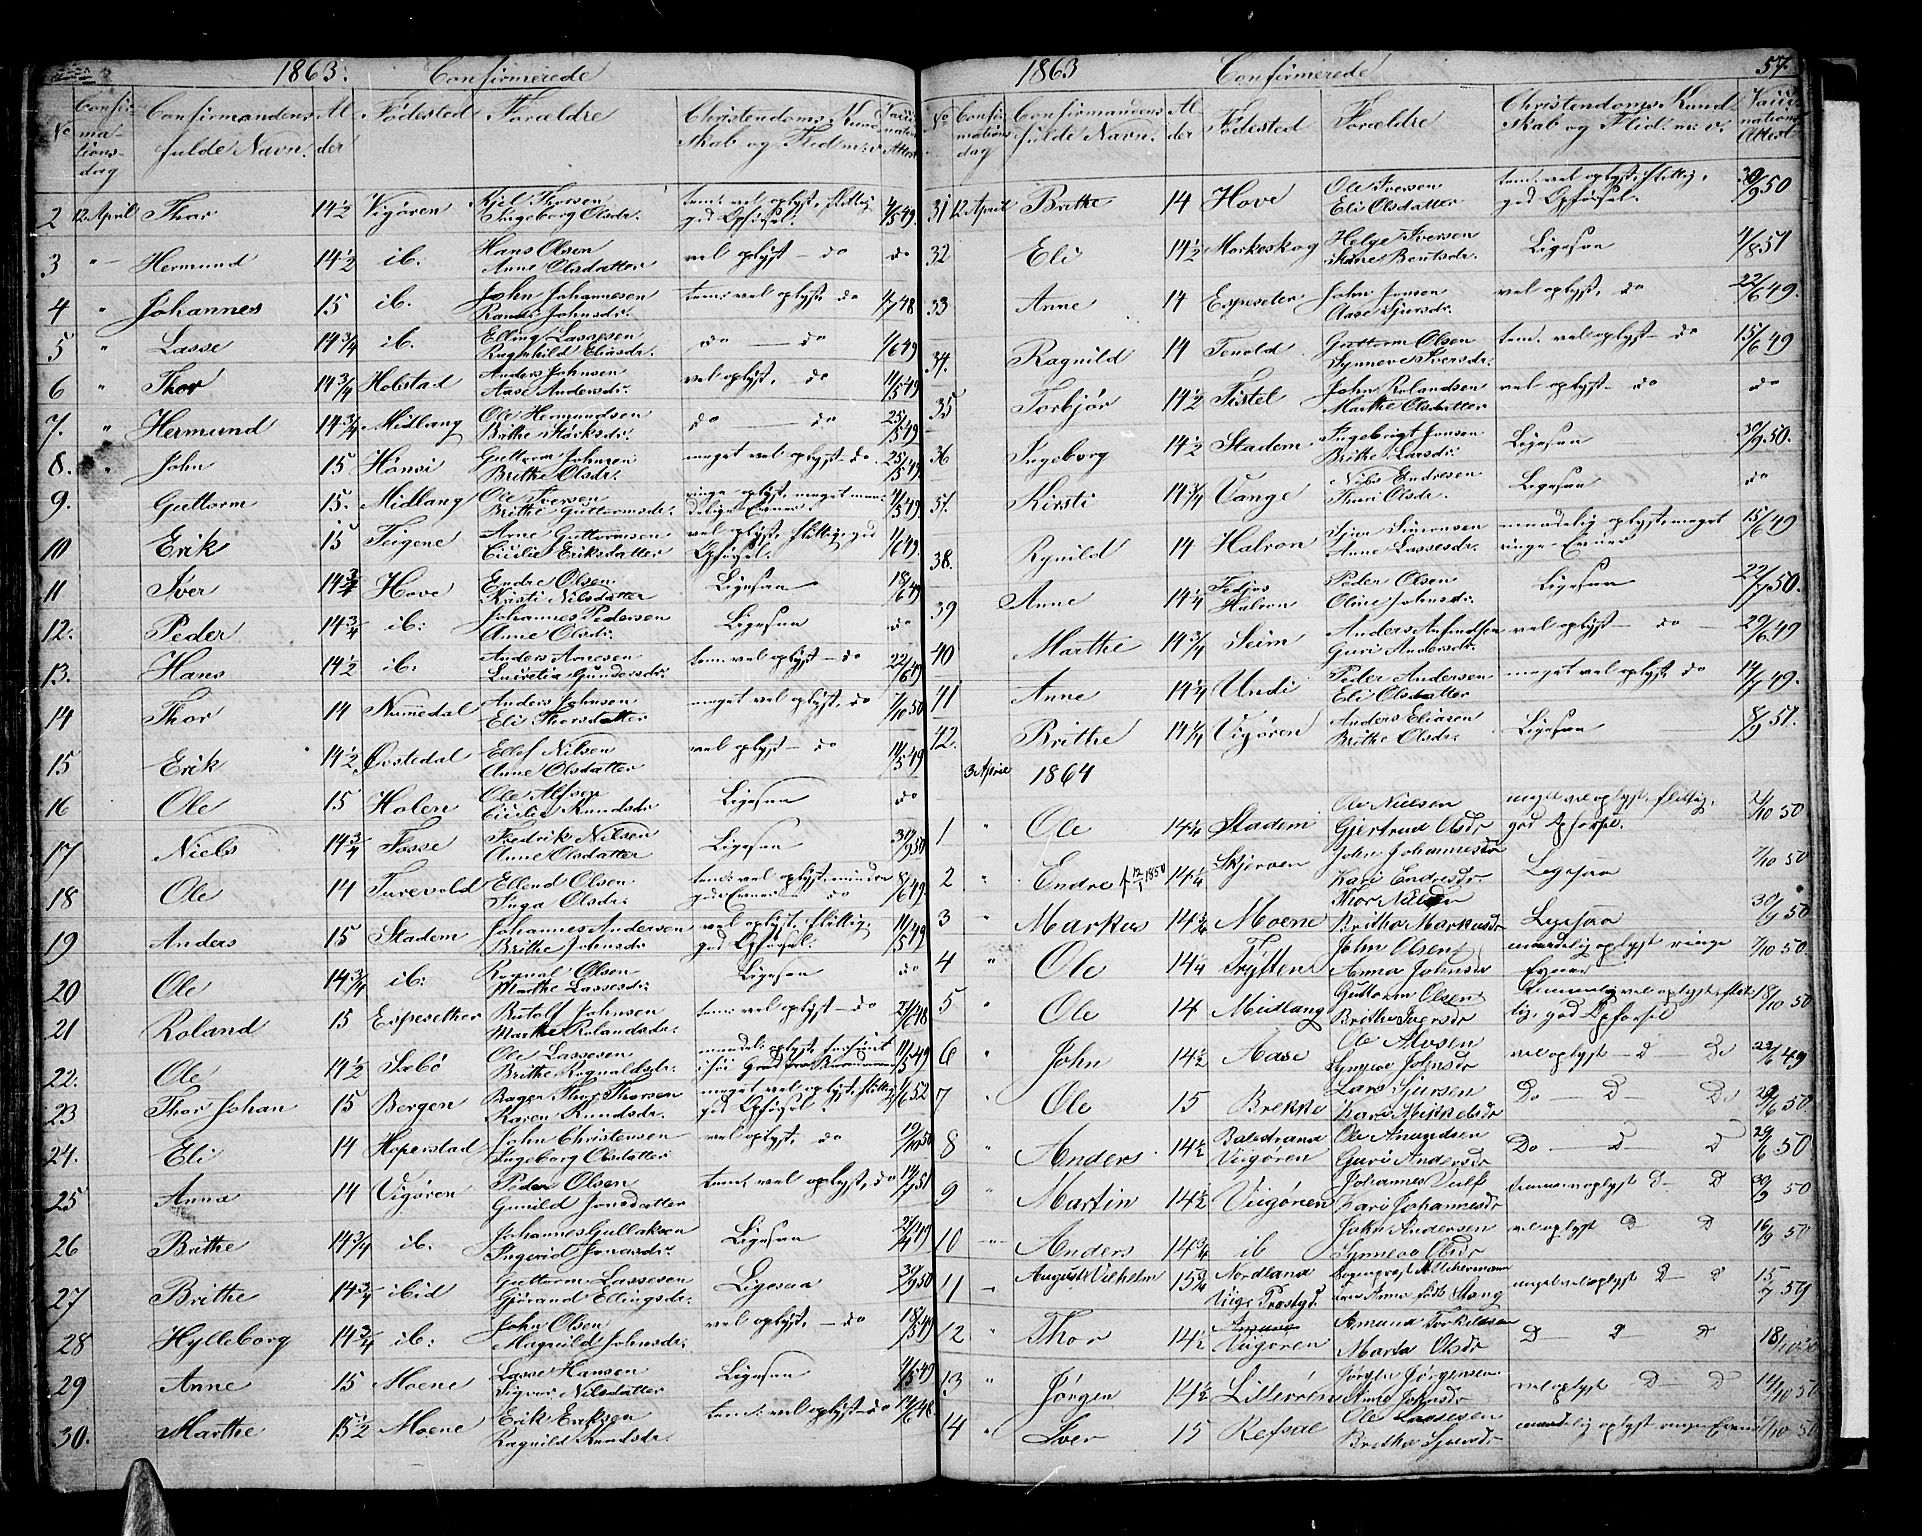 1863. Confirmerede
No Confirmationsdag Confirmandens fulde Navn. Alder Fødested Forældre Christendoms Kundskab og Flid m: v. Vaccinations Attest
2 12 April Thor 14 1/2 Vigøren Kjel Thorsen Ingeborg Olsdr. tem: vel oplyst, flittig, god Opførsel. 4/5 49.
3 " Hermund 14 1/2 ib. Hans Olsen Anne Olsdatter vel oplyst – do do
4 " Johannes 15 ib. John Johannesen Johnsdr. tem: vel oplyst, do 48
5 " Lasse 14 3/4 ib. Elling Lassesen Ragnhild Eliasdr. do – do 1/6 49
6 " Thor 14 3/4 Holstad Anders Johnsen Aase Andersdr. vel oplyst, – do 11/5 49
7. " Hermund 14 3/4 Midlang Ole Hermundsen Brithe do – do 25/5 49
8. " John 15 Hønsi Guttorm Johnsen Brithe Olsdr. meget vel oplyst do. 25/5 49
9. Guttorm 15. Midlang Ole Iversen Brithe Guttormsdr. ringe oplyst, meget maadelige Evner. 4/5 49
10 Erik 15 Teigene Arne Guttormsen Cicilie Eriksdatter vel oplyst, flittig, god Opførsel. 1/6 49
11 Iver 14 3/4 Hove Endre Olsen Kristi Nilsdatter Ligesaa 18/6 49
12. Peder 14 3/4 ib: Johannes Pedersen Anne Olsdr. Ligesaa do
13. Hans 14 1/2 ib. Anders Arnesen Gundersdr. tem: vel oplyst – do 22/6 49
14 Thor 14 Nummedal Anders Johnsen Eli Thorsdatter meget vel oplyst, do 7/10 50
15 Erik 14 1/2 Ovstedal Ellef Nilsen Anne Olsdatter vel oplyst – do 11/5 49
16 Ole 15 Holen Ole Alfsen Cicilia Knudsdr Ligesaa do
17 Niels 14 3/4 Fosse Fredrik Nilsen Anne Olsdatter Ligesaa 30/9 50
18 Ole 14 Turevold Ellend Olsen Inga Olsdr. tem: vel oplyst, mindre gode Evner do 8/6 49
19 Anders 15 Stadem Johannes Andersen Brithe Johnsdr. vel oplyst, flittig, god Opførsel. 11/5 49
20 Ole 14 3/4 ib: Ragnal Olsen Marthe Lassesdr: Ligesaa do
21 Roland 15 Espesether Botolf Johnsen Marthe Rolandsdr. tem: vel oplyst – do 48
22. Ole 14 1/2 Sørbø Ole Lassesen Brithe Ragnaldsdr. 11/5 49
23 Thor Johan 15 Bergen Bager Thor Thorsen Karen Knudsdr. meget vel oplyst, flittig, god Opførsel. 1/6 52
24. Eli 14 Hoperstad John Christensen Ingeborg Olsdatter vel oplyst, do 19/10 50
25 Anna 14 Vigøren Peder Olsen Gunild Jonsdatter tem: vel oplyst, do 14/7 51
26 Brithe 14 3/4 ib. Johannes Gullaksen Ingerid Jonasdr: Ligesaa 49
27 Brithe 14 3/4 ibid Guttorm Lassesen Gjørand Ellingsdr. Ligesaa 30/9 50
28 Hylleborg 14 3/4 ib: John Olsen Magnild Johnsdr. vel oplyst, – do 18/5 49
29 Anne 15 Moene Lasse Hansen Sigvor Nilsdatter Ligesaa 11/5 49
30. Marthe 15 1/2 Moene Erik Eriksen Ragnild Knudsdr. tem: vel oplyst – do 14/6 48
1863 Confirmerede 57.
No Confirmations dag Confirmandens fulde Navn. Alder Fødested Forældre Christendoms Kundskab og Flid. m: v. Vaccinations Attest
31 12 April Brithe 14 Hove Ole Iversen Eli Olsdatter tem: vel oplyst, flittig, god Opførsel. 30/9 50
32 Eli 14 1/2 Morkeskog Helge Iversen Bentsdr. Ligesaa 4/8 51
33 Anne 14 Espeseter John Jonsen Aase Sjursdr. vel oplyst, do 22/6 49.
34. Ragnild 14 Tenold Guttorm Olsen Synneve Iversdr. tem. vel oplyst – do 15/6 49
35 Torbjør 14 1/2 Fistel John Rolandsen Marthe Olsdatter vel oplyst – do do
36 Ingeborg 14 1/2 Stadem Ingebrigt Jonsen Brithe Larsdr. Ligesaa 30/9 50.
37. Kirsti 14 3/4 Vange Niels Endresen Thuri Olsdr. Ligesaa do
38. Rynild 14 Halvon Sjur Simonsen Anne Lassesdr. maadelig oplyst, meget ringe Evner 15/6 49
39 Anne 14 1/4 Halvon Peder Olsen Oline Johnsdr. Ligesaa 22/7 50.
40 Marthe 14 3/4 Seim Anders Guri Andersdr. vel oplyst – do – 29/6 49
41 Anne 14 1/4 Undi Peder Andersen Eli Olsdatter meget vel oplyst do 14/7 49.
42. Brithe 14 1/4 Vigøren Anders Eliasen Brithe Olsdr. Ligesaa 8/9 51.
3 April 1864
1 " Ole 14 1/4 Stadem Ole Nielsen Gjertrud Olsdr meget vel oplyst, flittig, god Opførsel. /10 50
2 " Endre f 12/1 1850 14 1/4 Skjerven John Johannesen Kari Endresdr. Ligesaa 7/10 50
3 " Markus 14 3/4 Moene Thor Nilsen Britha Markusdr Ligesaa 30/9 50
4 " Ole 14 1/4 John Olsen Anna Johnsdr maadelig oplyst ringe Evner 7/10 50.
5 " Ole 14 Midlang Guttorm Olsen Britha Iversdr temmelig vel oplyst, flittig, god Opførsel 18/10 50
6 " John 14 1/2 Aase Ole Synneve Johnsdr vel oplyst – D – Do 22/6 49
7 " Ole 15 Brekke Lars Sjursen Kari Mikkelsdr Do – D – Do 50
8 " Anders 14 1/2 Balestrand Viigøren Ole Amundsen Guri Andersdr Do – D – D 29/6 50
9 " Martin 14 1/2 Viigøren Johannes Kari Johannesdr D – D 30/9 50
10 " Anders 14 3/4 ib John Andersen Synneva Olsdr vel oplyst D D 16/9 50
11 " August Vilhelm 15 3/4 Nordland Viigs Præstgd. Anna født Stang meget vel oplyst D – D 15/7 50
12 " Thor 14 1/2 Viigøren Amund Torkildsen Marta Olsdr D – D D 18/10 50
13 " Jørgen 14 1/2 Litlerøen Jørgen Jørgensen Anna Johnsdr vel oplyst D – D 14/10 50
14 " Iver 15 Refsdal Ole Lassesen Britha Sjursdr maadelig oplyst ringe Evner /10 50